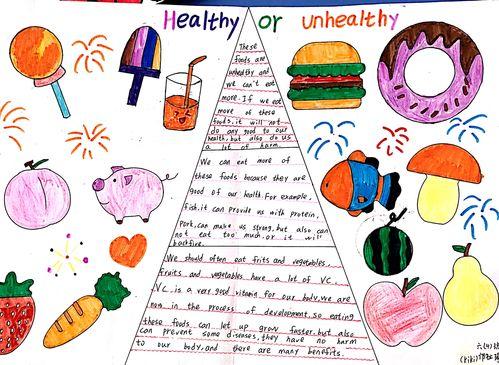 Healthy or unhealthy
These
foods are
unhealthy and
we can't eat
more. If we eat
more of these
foods, it will not
do any good to our
health, but also do us
a lot of harm.
We can eat more of
these foods because they are
good of our health. For example,
fish, it can provide us with protein,
Pork, can make us strong, but also can
not eat too much, or it will
backfire.
We should often eat frits and vegetables,
fruits and vegetables have a lot of VC.
VC is a very good vitamin for our body, we are
now in the process of development, so eating
these foods can let up grow faster, but also
can prevent some diseases, they have no harm
to our body, and there are many benefits.
六(4)班
(Kiki)